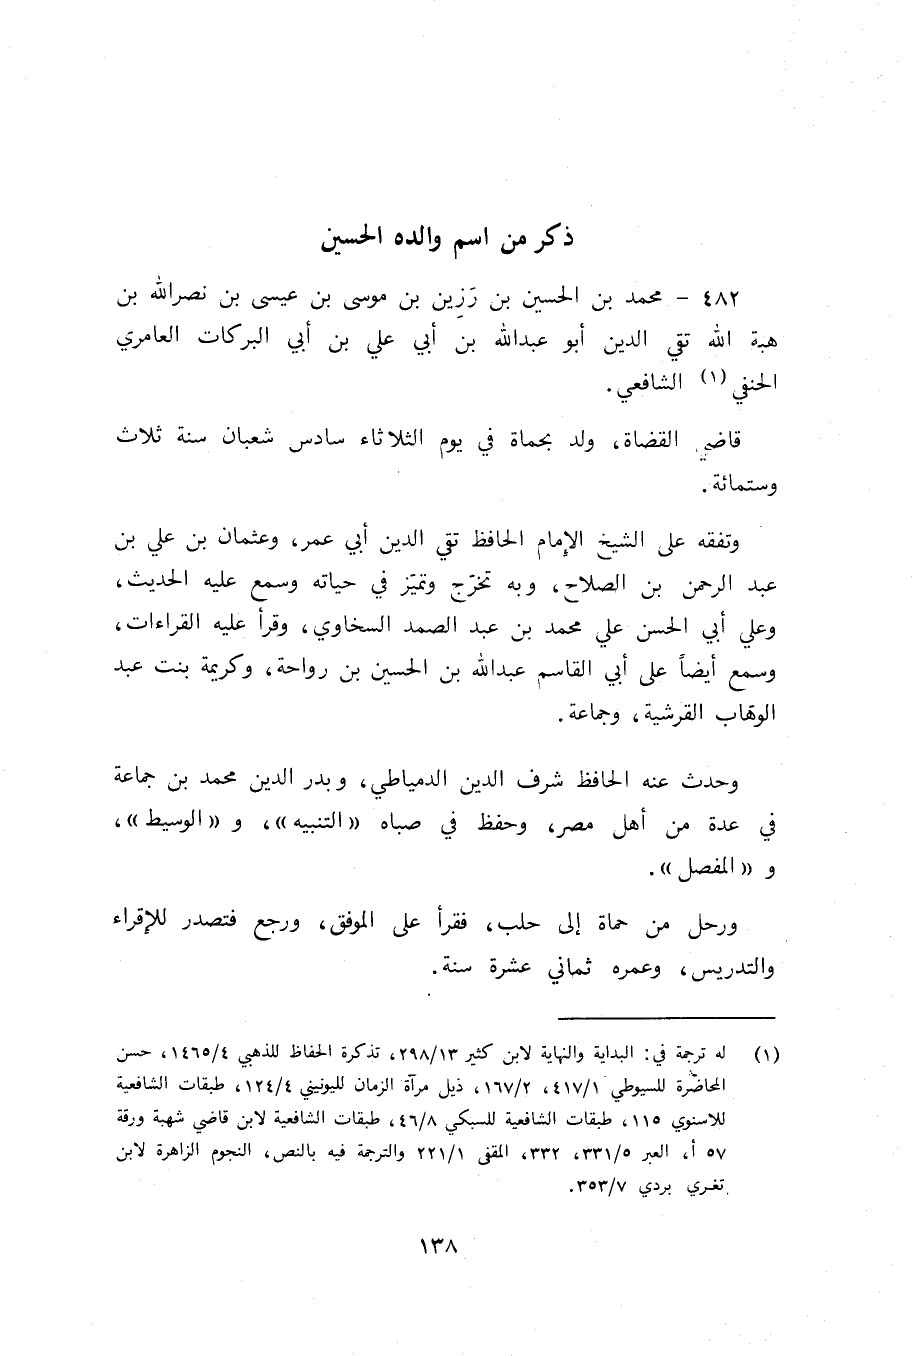 ذكر من اسم والده الحسين
٤٨٢ - محمد بن الحسين بن رَزِين بن موسى بن عيسى بن نصرالله بن
هبة الله تقي الدين أبو عبدالله بن أبي علي بن أبي البركات العامري
الحنفي (١) الشافعي.
قاضي القضاة، ولد بحماة في يوم الثلاثاء سادس شعبان سنة ثلاث
وستمائة.
وتفقه على الشيخ الإمام الحافظ تقي الدين أبي عمر، وعثمان بن علي بن
عبد الرحمن بن الصلاح، وبه تخرّج وتميّز في حياته وسمع عليه الحديث،
وعلي أبي الحسن علي محمد بن عبد الصمد السخاوي، وقرأ عليه القراءات،
وسمع أيضاً على أبي القاسم عبدالله بن الحسين بن رواحة، وكريمة بنت عبد
الوهّاب القرشية، وجماعة.
وحدث عنه الحافظ شرف الدين الدمياطي، وبدر الدين محمد بن جماعة
في عدة من أهل مصر، وحفظ في صباه «التنبيه»، و «الوسيط»،
و «المفصل».
ورحل من حماة إلى حلب، فقرأ على الموفق، ورجع فتصدر للإقراء
والتدريس، وعمره ثماني عشرة سنة.
(١) له ترجمة في: البداية والنهاية لابن كثير ٢٩٨/١٣، تذكرة الحفاظ للذهبي ١٤٦٥/٤، حسن
المحاضرة للسيوطي ٤١٧/١، ١٦٧/٢، ذيل مرآة الزمان لليونيني ١٢٤/٤، طبقات الشافعية
للاسنوي ١١٥، طبقات الشافعية للسبكي ٤٦/٨، طبقات الشافعية لابن قاضي شهبة ورقة
٥٧ أ، العبر ٣٣١/٥، ٣٣٢، المقفى ٢٢١/١ والترجمة فيه بالنص، النجوم الزاهرة لابن
تغري بردي ٣٥٣/٧.
١٣٨